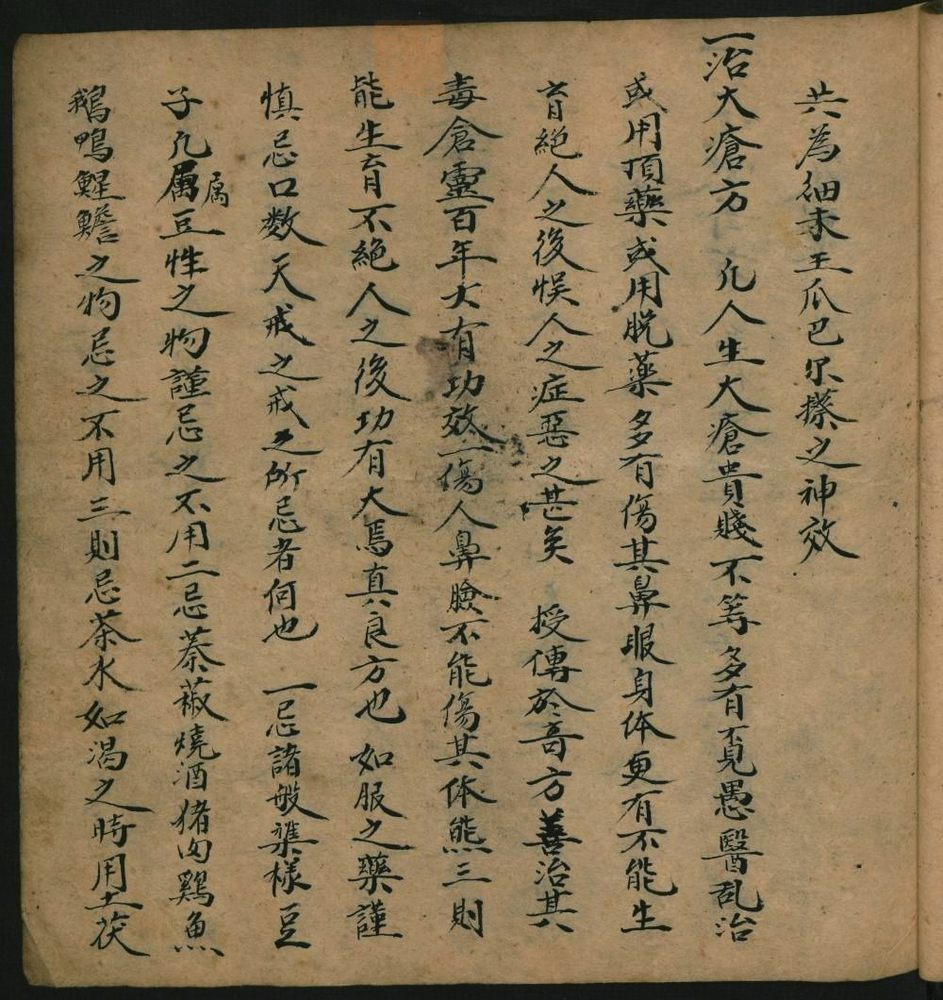 共為細末王瓜巴尔搽之神效
一治大瘡方 凢人生大瘡貴賤不等多有不見愚醫乱治
或用頂藥或用脱藥多有傷其鼻眼身体更有不能生
育絕人之後悮人之症惡之甚矣 授傳於竒方善治其
毒倉靈百年大有功效一傷人鼻臉不能傷其体熊三則
能生育不絕人之後功有大焉真良方也如服之藥謹
慎忌口数天戒之戒之所忌者何也 一忌諸般樣豆
子凢属豆性之物謹忌之不用二忌椒燒酒猪肉鷄魚
属
鵝鴨鯹之物忌之不用三則忌茶水如渴之時用土茯